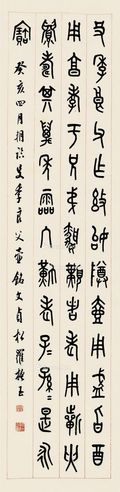 殳季良父乍姒尊壺用盛旨酉
用享孝于兄弟婚媾者老用祈匄
眉壽其萬年霝冬難老子子孫孫是永
寶
癸亥四月史季良父壺銘文貞松羅振玉